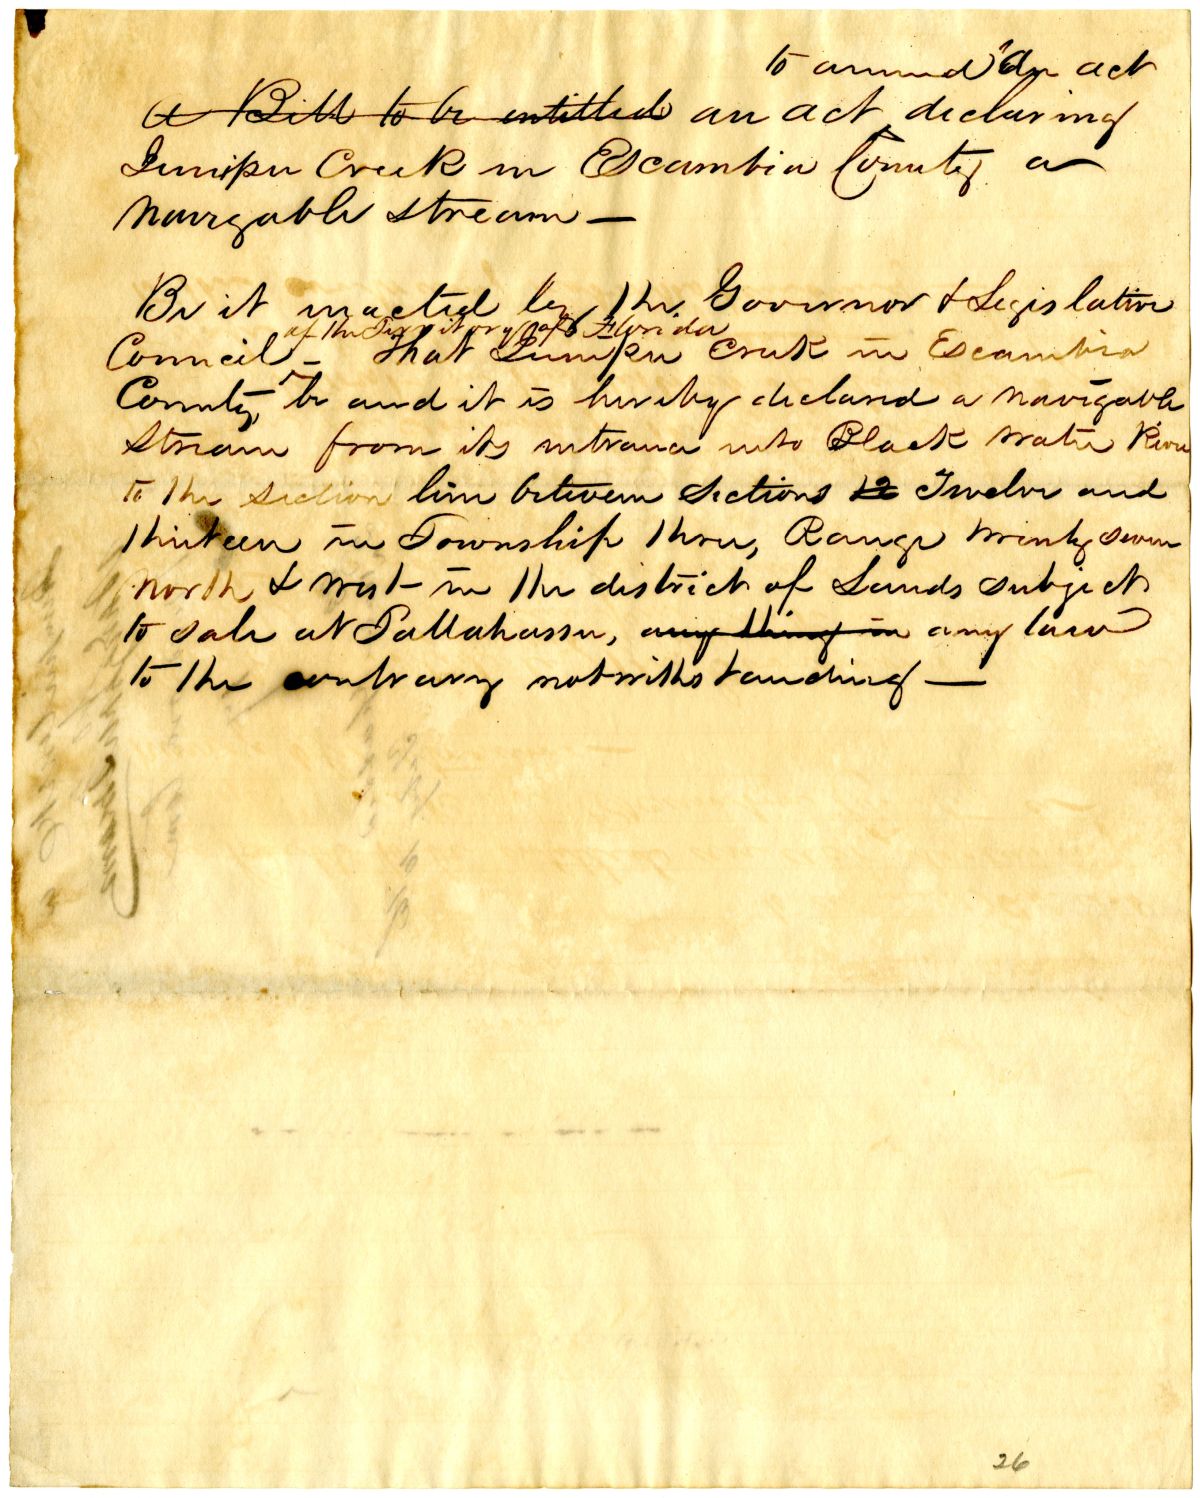 to amend "An act
A Bill to be entitled an act declaring
Juniper Creek in Escambia County a
Navigable stream —
Be it enacted by the Governor & Legislative
of the Territory of Florida
Council — That Juniper Creek in Escambia
County be and it is hereby declared a navigable
Stream from its entrance into Black Water River
to the section line between Sections 12 Twelve and
thirteen in Township three, Range twenty seven
North & West in the district of Lands subject
to sale at Tallahassee, any thing in any law
to the contrary notwithstanding —
26